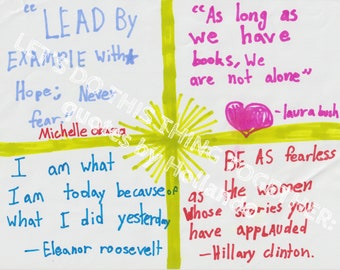 "LEAD By
EXAMPLE With
Hope; Never
fear"
Michelle obama
"As long as
we have
books, We
are not alone"
- laura bush
I am what
I am today because of
what I did yesterday
- Eleanor roosevelt
BE AS fearless
as the women
whose stories you
have applauded
- Hillary clinton.
LET'S DO THIS THING TOGETHER: